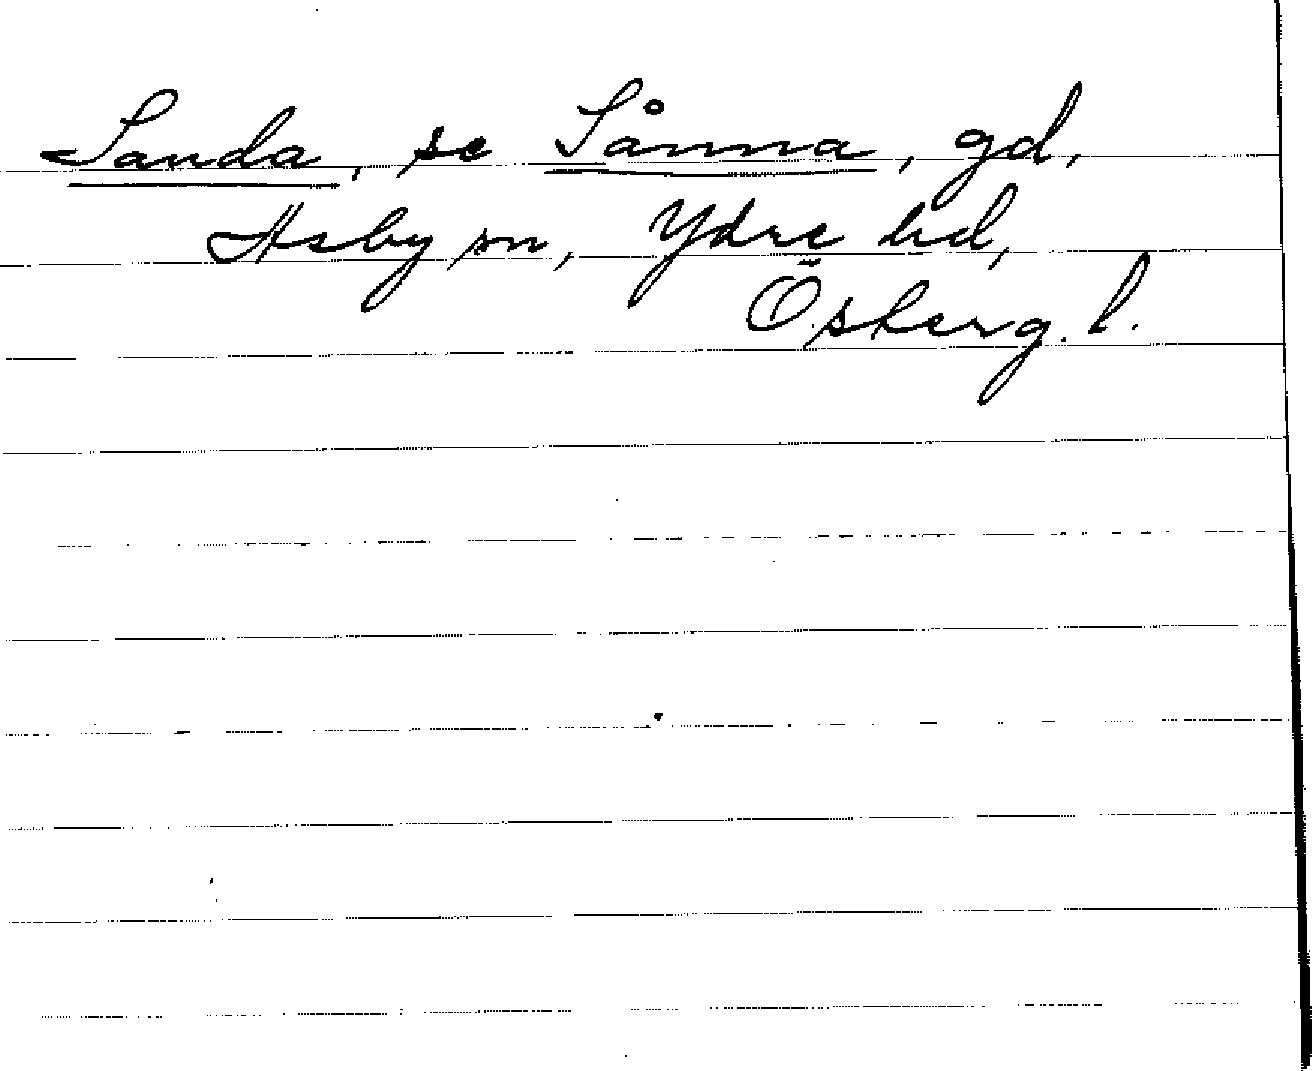 Sanda, se Sånna, gd,
Asby sn, Ydre hd,
Österg. l.